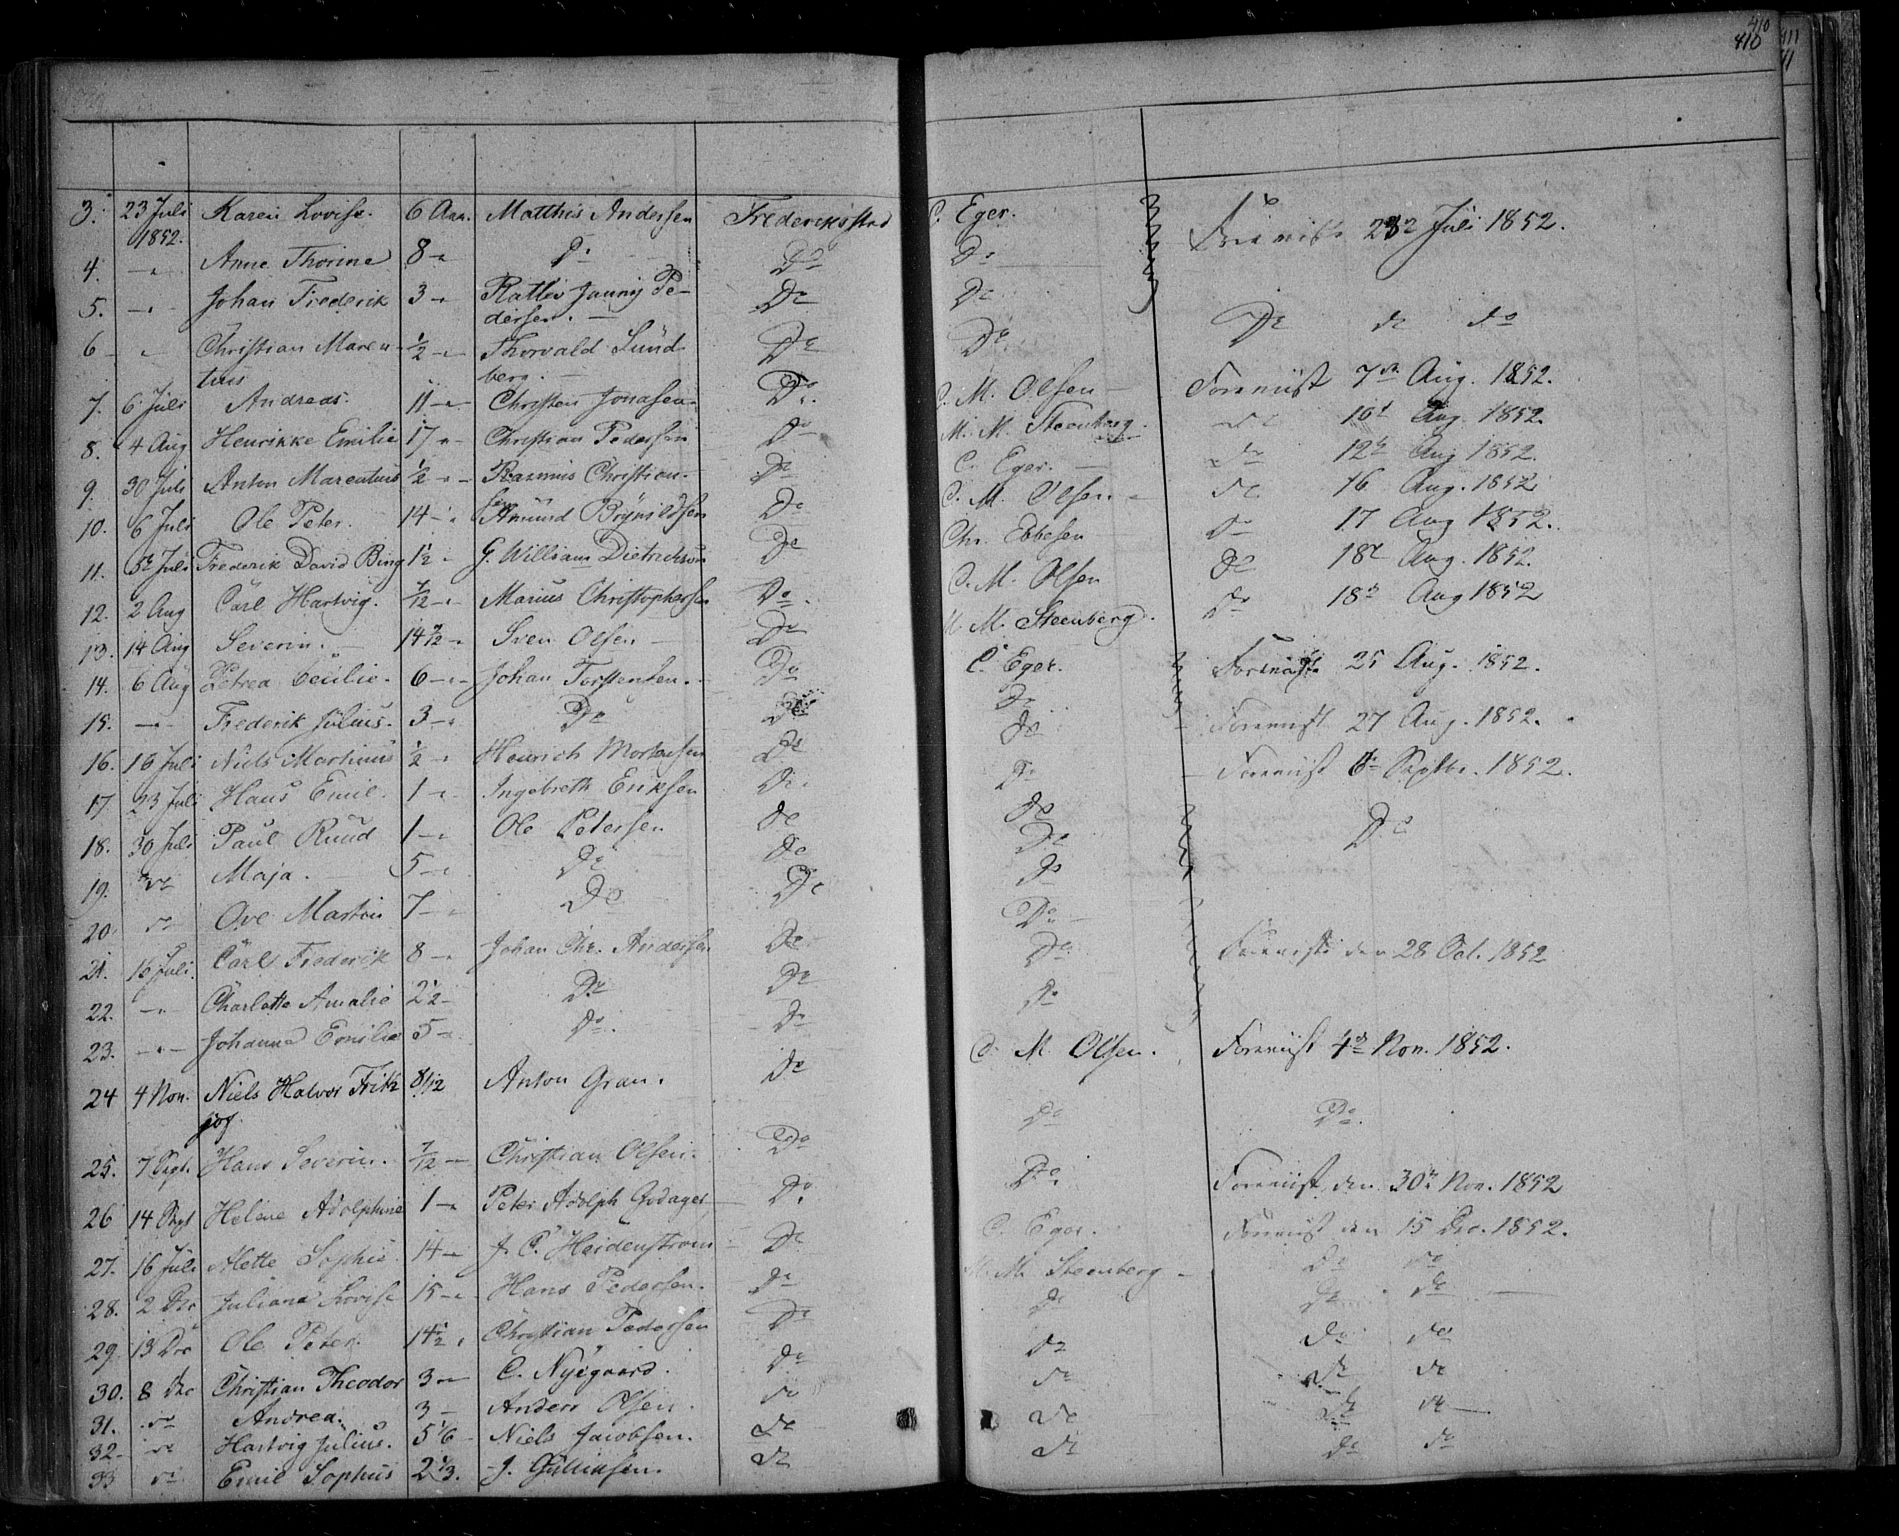 410
410
3. 23 Juli 1852. Karen Lovise. 6 Aar. Matthis Andersen Frederiksstad C. Eger. Foreviist 23de Juli 1852.
4. -"- Anne Thorine 8 -"- Do Do Do
5. -"- Johan Frederik 3 -"- Pe-
dersen. Do Do Do do do
6 - " Christian Maren-
tius 1/2 -"- Thorvald Sünd-
berg. Do Do
7. 6 Juli Andreas. 11 -"- Christen Jonasen. Do. C. M. Olsen Foreviist 7de Aug. 1852.
8. 4 Aug Henrikke Emilie 17 -"- Christian Pedersen Do M. M. Steenberg do 10d Aug. 1852.
9. 30 Juli Anton Marentius 1/2 -"- Rasmus Christian-
sen Do C. Eger. do 12te Aug 1852.
10. 6 Juli Ole Peter. 14 -"- Amund Brynildsen Do C. M. Olsen do 16 Aug. 1852
11. 5t Juli Frederik David Bing 1 1/2 - G. William Dietrichson Do Chr. Ebbesen do 17 Aug 1852.
12. 2 Aug Carl Hartvig. 7/12 -"- Marius Christophersen Do. C. M. Olsen do 18d Aug. 1852.
13. 14 Aug Severin. 14 1/2 -"- Sven Olsen Do M. M. Steenberg. do 18de Aug 1852
14. 6 Aug Petrea Cecilie. 6 -"- Johan Torstensen. Do C. Eger. Foreviist 25 Aug. 1852.
15. -"- Frederik Julius. 3 -"- Do Do Do
16. 16 Juli Niels Martinus 1/2 -"- Henrich Mortensen Do Do Foreviist 27 Aug. 1852.
17 23 Juli Hans Emil. 1 -"- Ingebreth Eriksen Do. Do Foreviist 6te Septbr. 1852.
18. 30 Juli Paul Ruud 1 -"- Ole Petersen do do Do
19. do Maja. 5 -"- Do do Do
20. do Ove Martin 7 -"- Do Do Do
21. 16 Juli. Carl Frederik 8 -"- Johan Chr. Andersen Do Do
22. -"- Charlotte Amalie 2 1/2 - Do Do Do Foreviist den 28 Oct. 1852
23. -"- Johanne Emilie 5 -"- Do. Do Do
24 4 Nov. Niels Halvor Frith-
jof. 8 1/12 Anton Gran. Do C. M. Olsen. Foreviist 4de Nov. 1852.
25. 7 Sept. Hans Severin. 7/12 - Christian Olsen. Do Do Do.
26 14 Sept Helene Adolphine 1 -"- Peter Adolph Godager Do. Do. Foreviist den 30te Nov. 1852
27. 16 Juli Mette Sophie 14 -"- J. C. Heidenstrom Do C. Eger. Foreviist den 15 Dec. 1852.
28. 2 Dec Juliane Lovise 15 -"- Hans Pedersen. Do M. M. Steenberg Do do
29. 13 Dec Ole Peter. 14 1/2 " Christian Pedersen Do do Do do
30. 8 Dec Christian Theodor 3 - C. Nyegaard. Do do Do do
31. do Andrea. 3 - Anders Olsen. do do Do do
32 - do Hartvig Julius. 5 1/6 - Niels Jacobsen. do do Do do
33 do Emil Sophus 2 1/3. J. Gulliksen. do do Do do